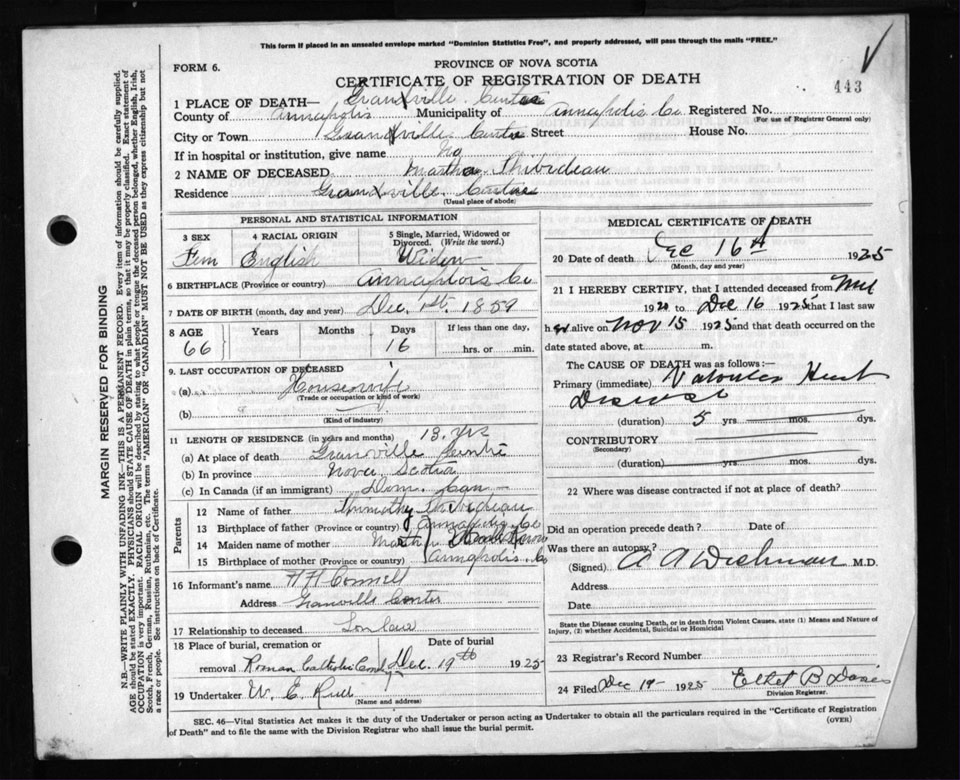 This form if placed in an unsealed envelope marked "Dominion Statistics Free", and properly addressed, will pass through the mails "FREE."
FORM 6.
PROVINCE OF NOVA SCOTIA
CERTIFICATE OF REGISTRATION OF DEATH
443
1 PLACE OF DEATH— Granville Centre
County of Annapolis Municipality of Annapolis Co Registered No.
(For use of Registrar General only)
City or Town Granville Centre Street House No.
If in hospital or institution, give name No
2 NAME OF DECEASED Martha Thibideau
Residence Granville Centre
(Usual place of abode)
PERSONAL AND STATISTICAL INFORMATION
3 SEX 4 RACIAL ORIGIN 5 Single, Married, Widowed or Divorced. (Write the word.)
Fem English Widow
6 BIRTHPLACE (Province or country) Annaplois Co
7 DATE OF BIRTH (month, day and year) Dec. 1st. 1859
8 AGE Years Months Days If less than one day,
66 16 hrs. or min.
9. LAST OCCUPATION OF DECEASED
(a) Housewife
(Trade or occupation or kind of work)
(b)
(Kind of industry)
11 LENGTH OF RESIDENCE (in years and months) 13. yrs
(a) At place of death Granville Centre
(b) In province Nova Scotia
(c) In Canada (if an immigrant) Dom. Can
Parents
12 Name of father Timmothy Thibideau
13 Birthplace of father (Province or country) Annapolis Co
14 Maiden name of mother Martha
15 Birthplace of mother (Province or country) Annapolis. Co
16 Informant's name H H Connell
Address Granville Center
17 Relationship to deceased Son law
18 Place of burial, cremation or Date of burial
removal Roman Catholic Dec. 19th 1925
19 Undertaker W. E.
(Name and address)
MEDICAL CERTIFICATE OF DEATH
20 Date of death Dec 16th 1925
(Month, day and year)
21 I HEREBY CERTIFY, that I attended deceased from
1920 to Dec 16 1925 that I last saw
her alive on Nov 15 1925 and that death occurred on
date stated above, at m.
The CAUSE OF DEATH was as follows:—
Primary (immediate) Valvular Heart
Disease
(duration) 5 yrs mos. dys.
CONTRIBUTORY
(Secondary)
(duration) yrs mos. dys.
22 Where was disease contracted if not at place of death?
Did an operation precede death? Date of
Was there an autopsy?
(Signed) A A Dechman M.D.
Address
Date
State the Disease causing Death, or in death from Violent Causes, state (1) Means and Nature of
Injury, (2) whether Accidental, Suicidal or Homicidal
23 Registrar's Record Number
24 Filed Dec 19 1925 B
Division Registrar.
SEC. 46—Vital Statistics Act makes it the duty of the Undertaker or person acting as Undertaker to obtain all the particulars required in the "Certificate of Registration
of Death" and to file the same with the Division Registrar who shall issue the burial permit. (OVER)
MARGIN RESERVED FOR BINDING
N.B.—WRITE PLAINLY WITH UNFADING INK—THIS IS A PERMANENT RECORD. Every item of information should be carefully supplied.
AGE should be stated EXACTLY. PHYSICIANS should STATE CAUSE OF DEATH in plain terms, so that it may be properly classified. Exact statement of
OCCUPATION is very important. RACIAL ORIGIN will be described by stating to what people or tongue the deceased person belonged, whether English, Irish,
Scotch, French, German, Russian, Ruthenian, etc. The terms "AMERICAN" OR "CANADIAN" MUST NOT BE USED as they express citizenship but not
a race or people. See instructions on back of Certificate.